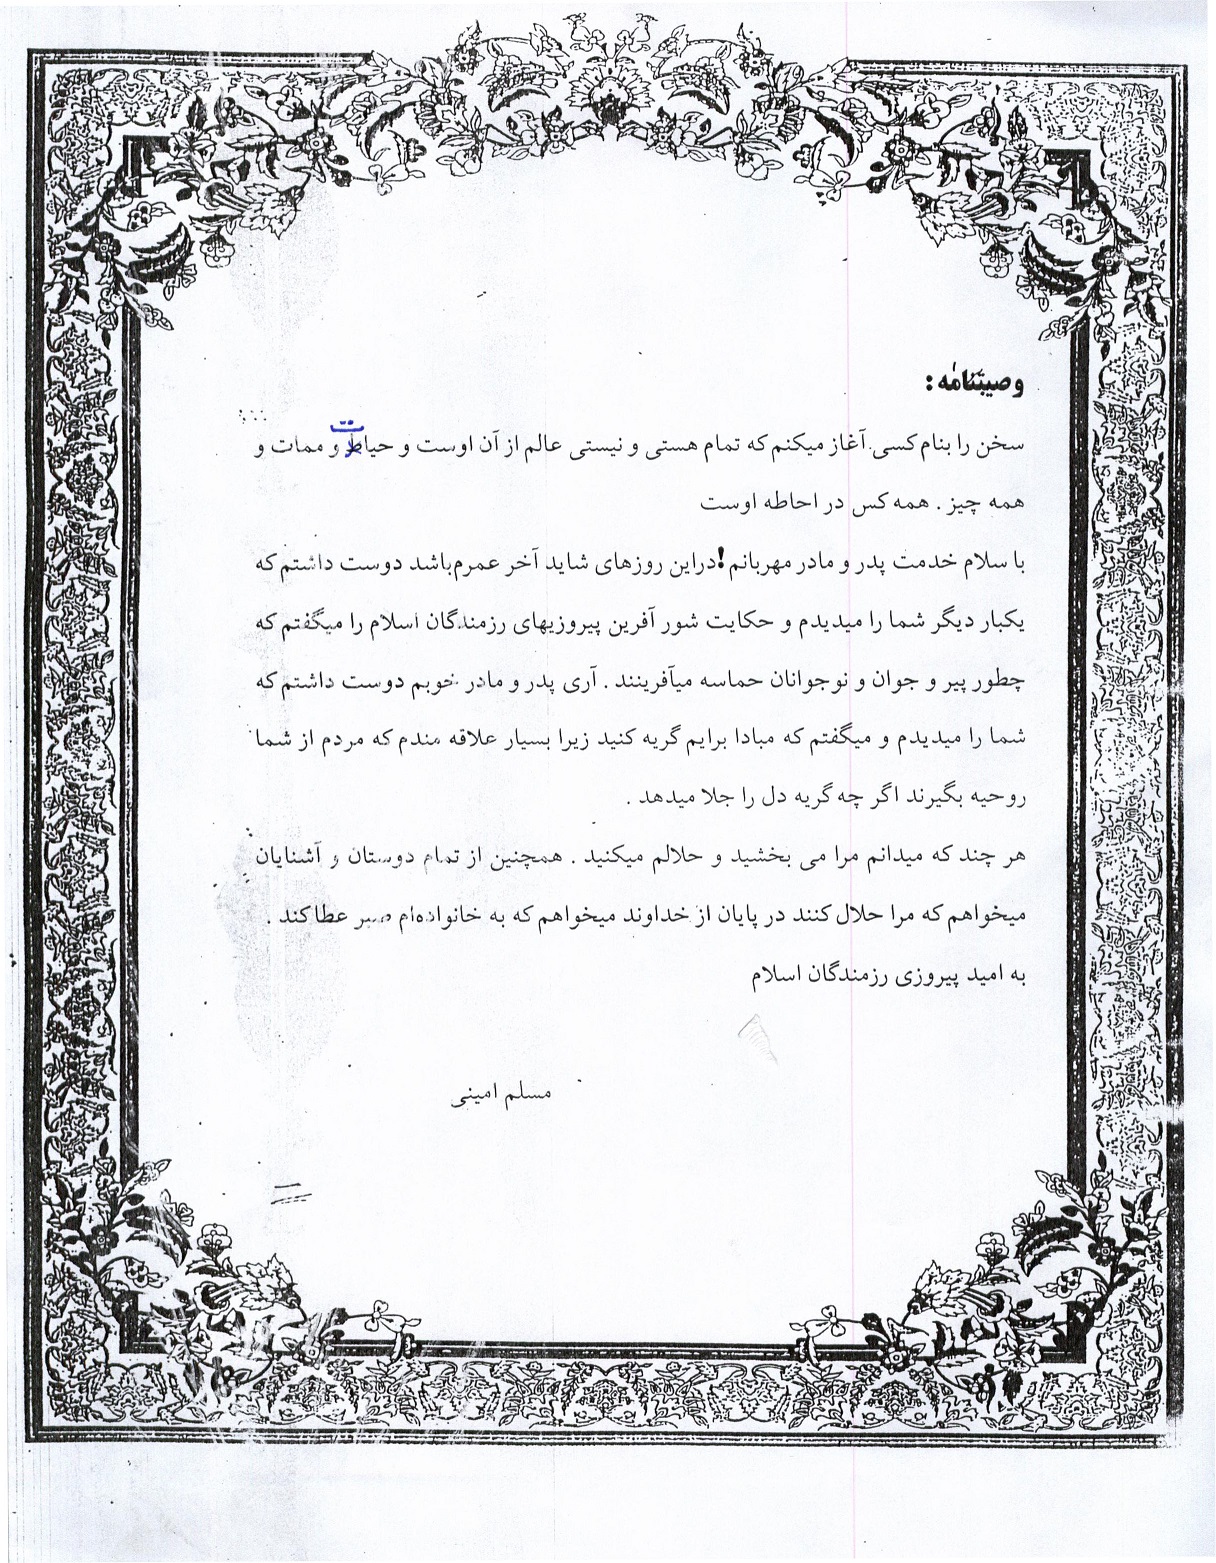 وصیتنامه :
سخن را بنام کسی آغاز میکنم که تمام هستی و نیستی عالم از آن اوست و حیات و ممات و
همه چیز . همه کس در احاطه اوست
با سلام خدمت پدر و مادر مهربانم ! دراین روزهای شاید آخر عمرم باشد دوست داشتم که
یکبار دیگر شما را میدیدم و حکایت شور آفرین پیروزیهای رزمندگان اسلام را میگفتم که
چطور پیر و جوان و نوجوانان حماسه میآفرینند . آری پدر و مادر خوبم دوست داشتم که
شما را میدیدم و میگفتم که مبادا برایم گریه کنید زیرا بسیار علاقه مندم که مردم از شما
روحیه بگیرند اگر چه گریه دل را جلا میدهد .
هر چند که میدانم مرا می بخشید و حلالم میکنید . همچنین از تمام دوستان و آشنایان
میخواهم که مرا حلال کنند در پایان از خداوند میخواهم که به خانواده‌ام صبر عطا کند .
به امید پیروزی رزمندگان اسلام
مسلم امینی